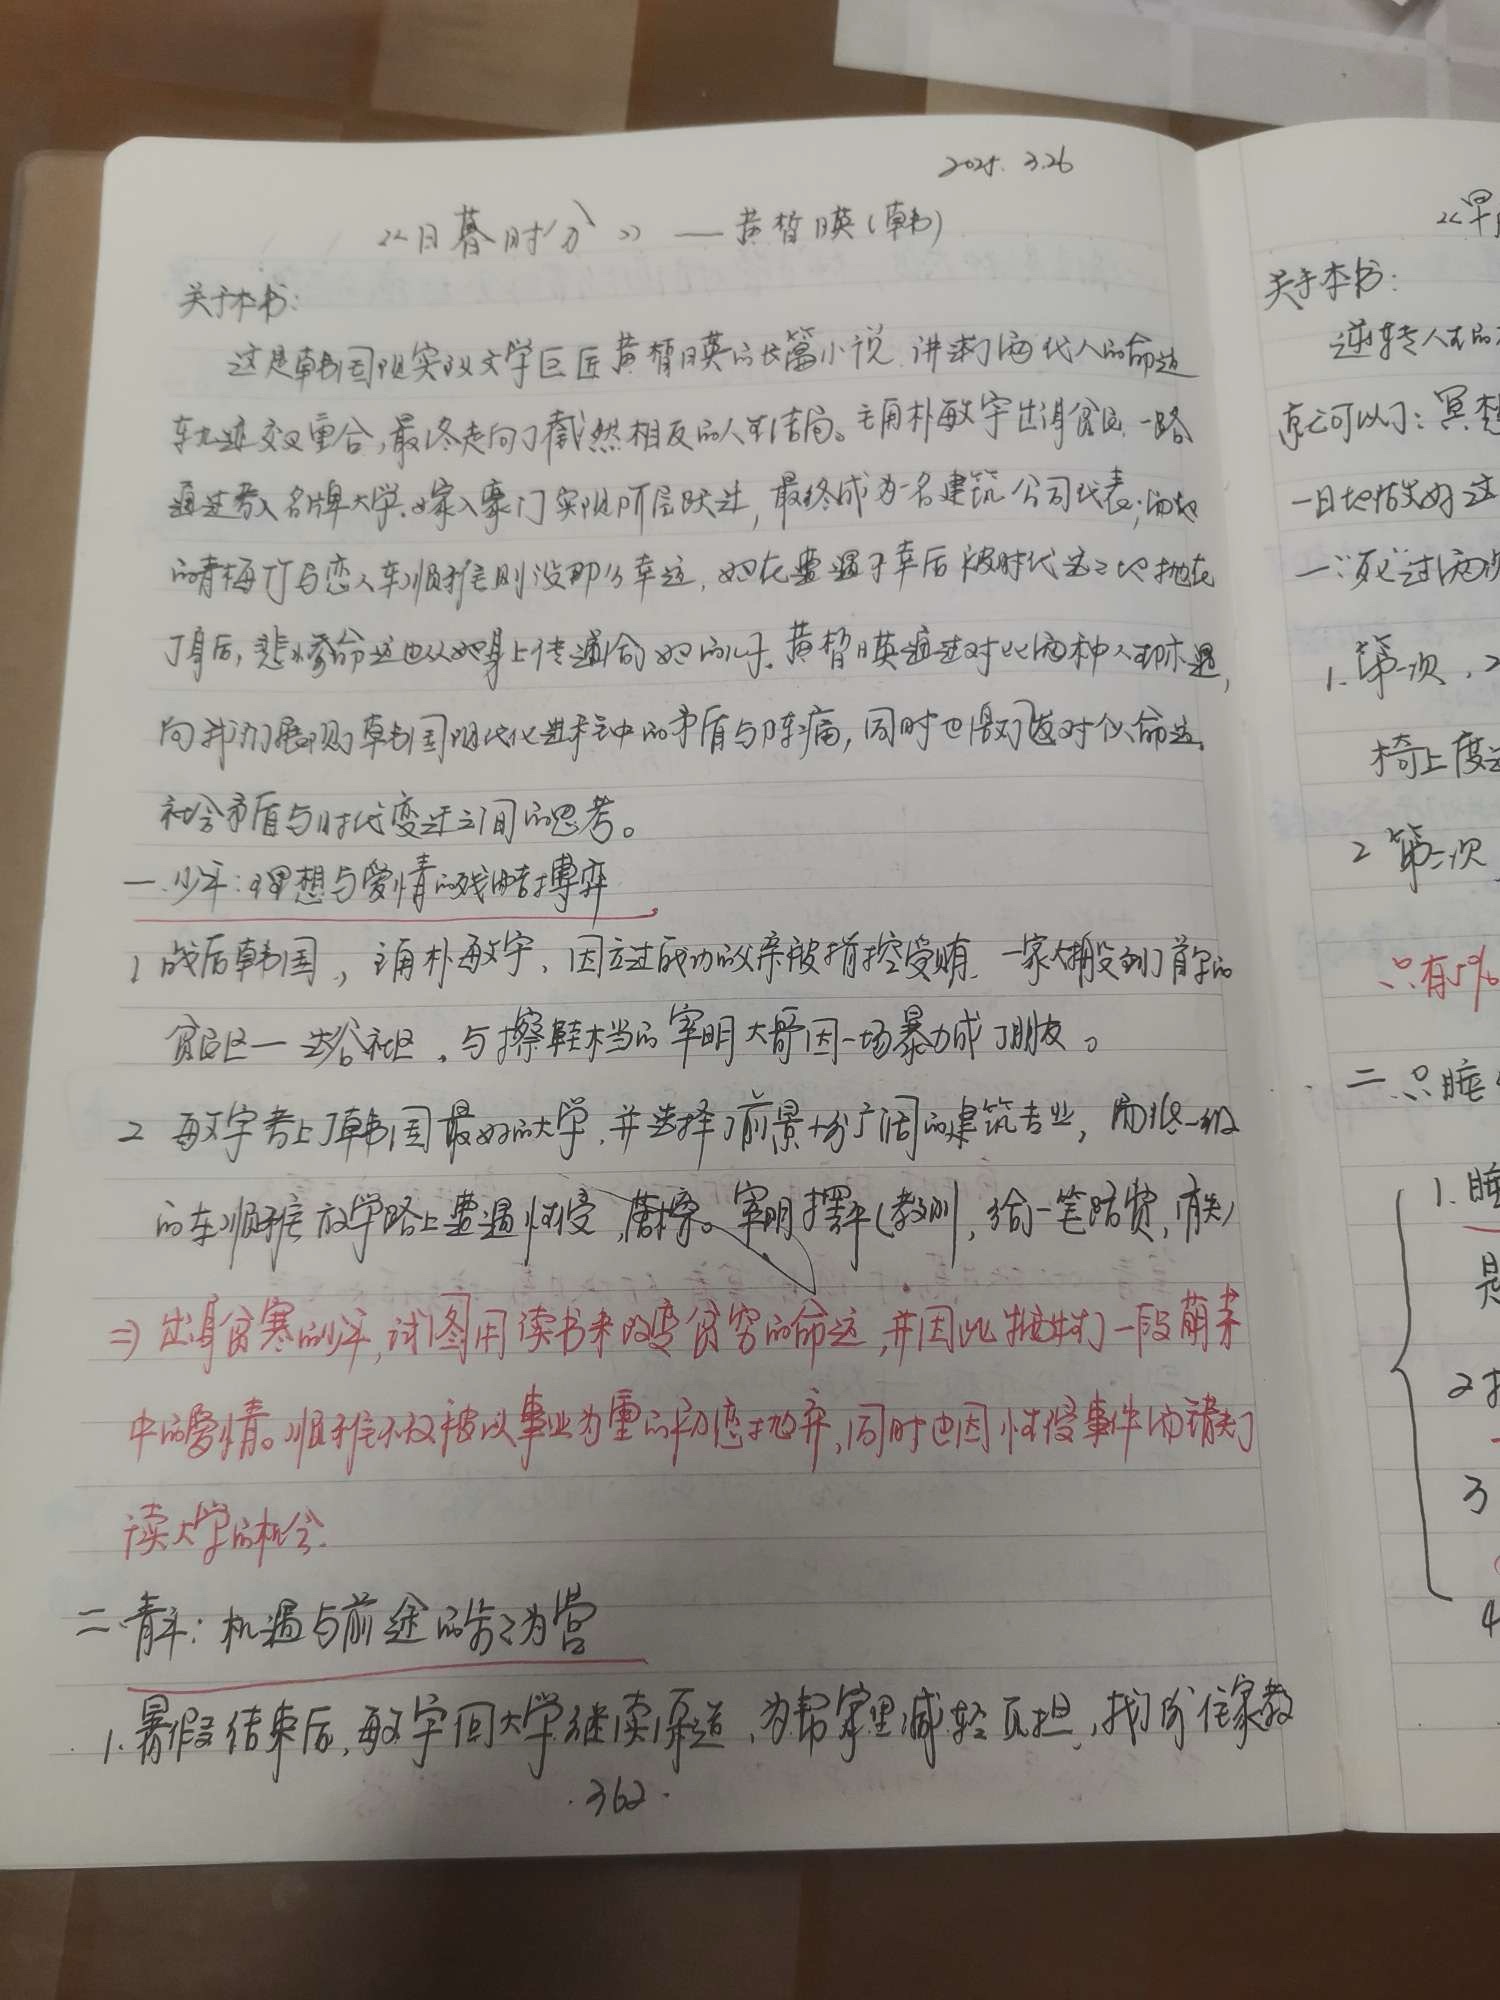 2025. 3.26
《日暮时分》——黄皙暎(韩)
关于本书:
这是韩国现实派文学巨匠黄皙暎的长篇小说.讲述了两代人的命运
轨迹交叉重合,最终走向了截然相反的人生结局。主角朴敏宇出身贫民,一路
通过考入名牌大学、嫁入豪门实现阶层跃迁,最终成为一名建筑公司代表;而她
的青梅竹马恋人车顺雅则没那么幸运,她在遭遇不幸后被时代远远地抛在
了身后,悲惨命运也从她身上传递给她的儿子.黄皙暎通过对比两种人生际遇,
向我们展现了韩国现代化进程中的矛盾与阵痛,同时也激发对个人命运、
社会矛盾与时代变迁之间的思考。
一.少年:理想与爱情的残酷博弈
1 战后韩国,主角朴敏宇、因立过战功的父亲被指控受贿.一家大搬到了首尔的
贫民区一达谷社区,与擦鞋档的宰明大哥因一场暴力成了朋友。
2 敏宇考上了韩国最好的大学,并选择了前景十分广阔的建筑专业,而低一级
的车顺雅放学路上遭遇性侵,宰明摆平(教训,给一笔路费,消失)
⇒出身贫寒的少年,试图用读书来改变贫穷的命运,并因此牺牲了一段萌芽
中的爱情。顺雅不仅被以事业为重的初恋抛弃,同时也因性侵事件而错失了
读大学的机会.
二.青年:机遇与前途的步步为营
1.暑假结束后,敏宇回大学继续深造,为帮家里减轻负担,找了份住家教
·362·
《早
关于本书:
逆转人生的
原已可以了:冥想
一日地
一:"死"过两次
1.第一次,2
椅上度过
2 第二次
只有5%
二.只睡
1.睡
是
2
3
4